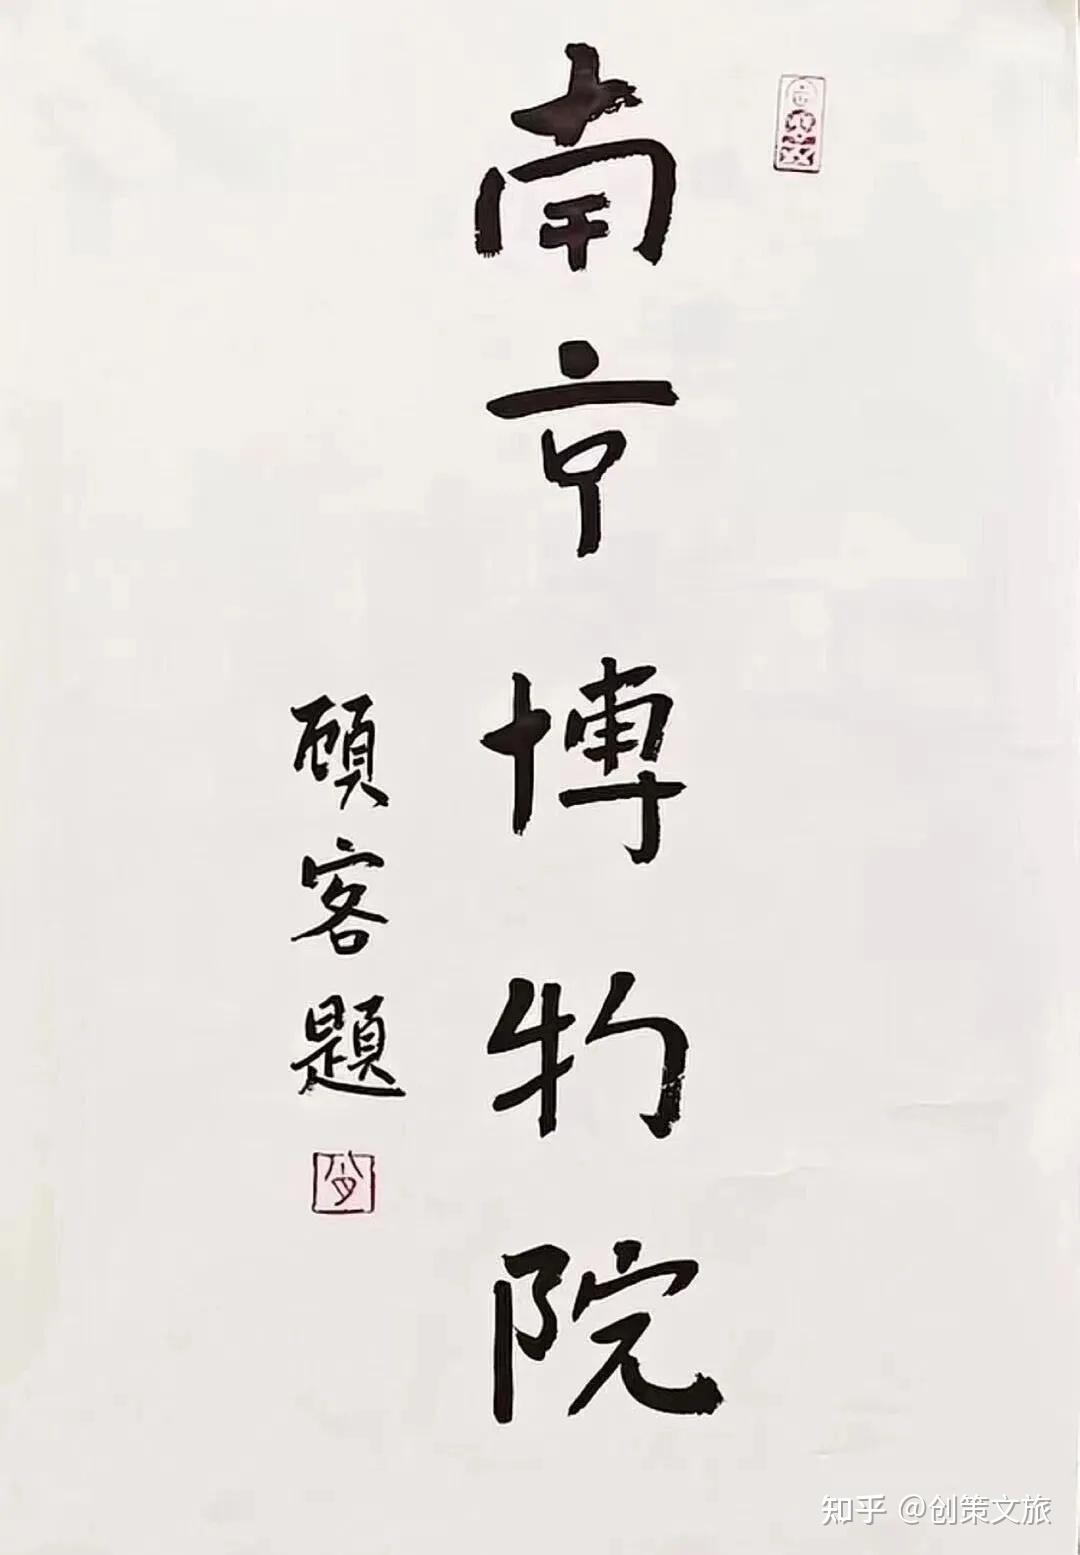 南京博物院
顾客題
知乎 @创策文旅